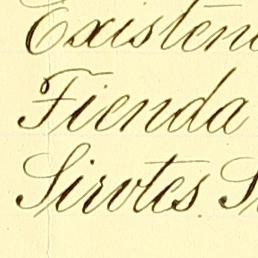 Existen
Fienda
Sirotes S